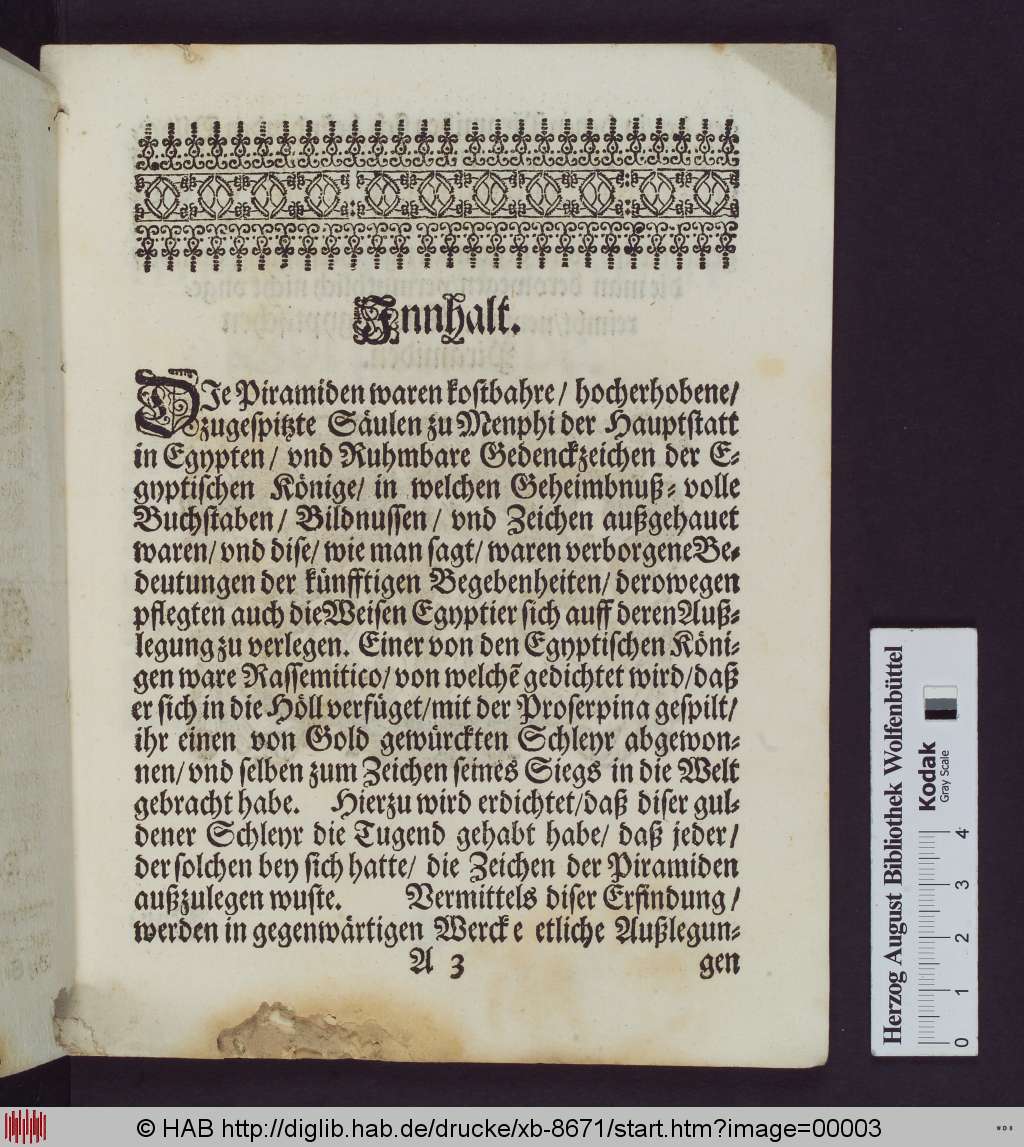 Innhalt.
DIe Piramiden waren kostbahre / hocherhobene /
zugespitzte Säulen zu Menphi der Hauptstatt
in Egypten / vnd Ruhmbare Gedenckzeichen der E-
gyptischen Könige / in welchen Geheimbnuß-volle
Buchstaben / Bildnussen / vnd Zeichen außgehauet
waren / vnd dise / wie man sagt / waren verborgene Be-
deutungen der künfftigen Begebenheiten / derowegen
pflegten auch die Weisen Egyptier sich auff deren Auß-
legung zu verlegen. Einer von den Egyptischen Köni-
gen ware Rassemitico / von welchẽ gedichtet wird / daß
er sich in die Höll verfüget / mit der Proserpina gespilt /
ihr einen von Gold gewürckten Schleyr abgewon-
nen / vnd selben zum Zeichen seines Siegs in die Welt
gebracht habe. Hierzu wird erdichtet / daß diser gul-
dener Schleyr die Tugend gehabt habe / daß jeder /
der solchen bey sich hatte / die Zeichen der Piramiden
außzulegen wuste. Vermittels diser Erfindung /
werden in gegenwärtigen Wercke etliche Außlegun-
A 3 gen
Herzog August Bibliothek Wolfenbüttel
Kodak
Gray Scale
0 1 2 3 4
© HAB http://diglib.hab.de/drucke/xb-8671/start.htm?image=00003